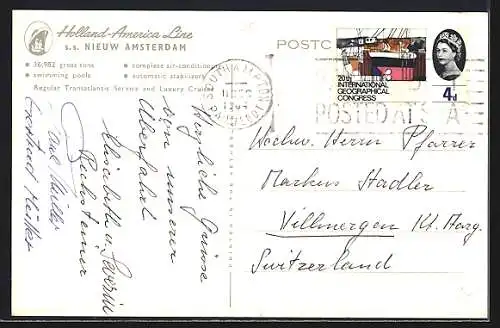 Holland-America Line
s.s. NIEUW AMSTERDAM
• 36,982 gross tons • complete air-conditioning
• swimming pools • automatic stabilizers
Regular Transatlantic Service and Luxury Cruises
POSTC
SOUTHAMPTON
POSTED AT SEA
20th
INTERNATIONAL
GEOGRAPHICAL
CONGRESS
4d
Herzliche Grüsse
von unserer
Überfahrt
Elisabeth u. Severin
Hochw. Herrn Pfarrer
Markus Stadler
Villmergen Kt. Aarg.
Switzerland